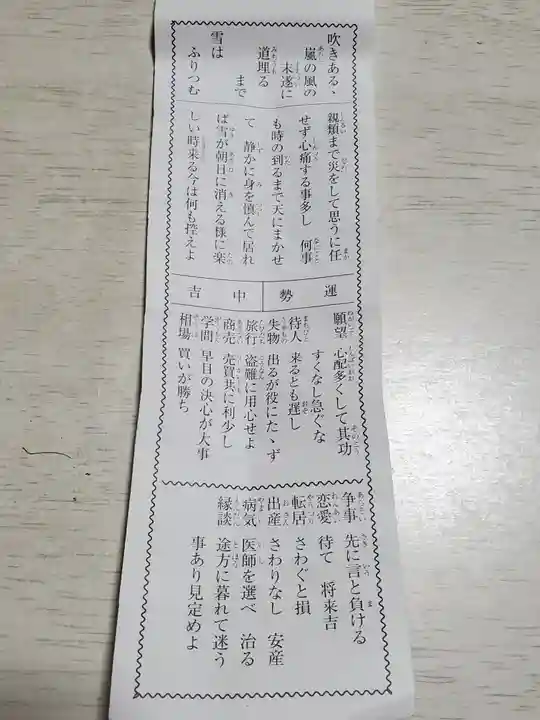 吹きある、
嵐の風の
末遂に
道埋る
まで
雪は
ふりつむ
親類まで災をして思うに任
せず心痛する事多し 何事
も時の到るまで天にまかせ
て 静かに身を慎んで居れ
ば雪が朝日に消える様に楽
しい時来る今は何も控えよ
運勢 中吉
願望 心配多くして其功
すくなし急ぐな
待人 来るとも遅し
失物 出るが役にたゝず
旅行 盗難に用心せよ
商売 売買共に利少し
学問 早目の決心が大事
相場 買いが勝ち
争事 先に言と負ける
恋愛 待て 将来吉
転居 さわぐと損
出産 さわりなし 安産
病気 医師を選べ 治る
縁談 途方に暮れて迷う
事あり見定めよ